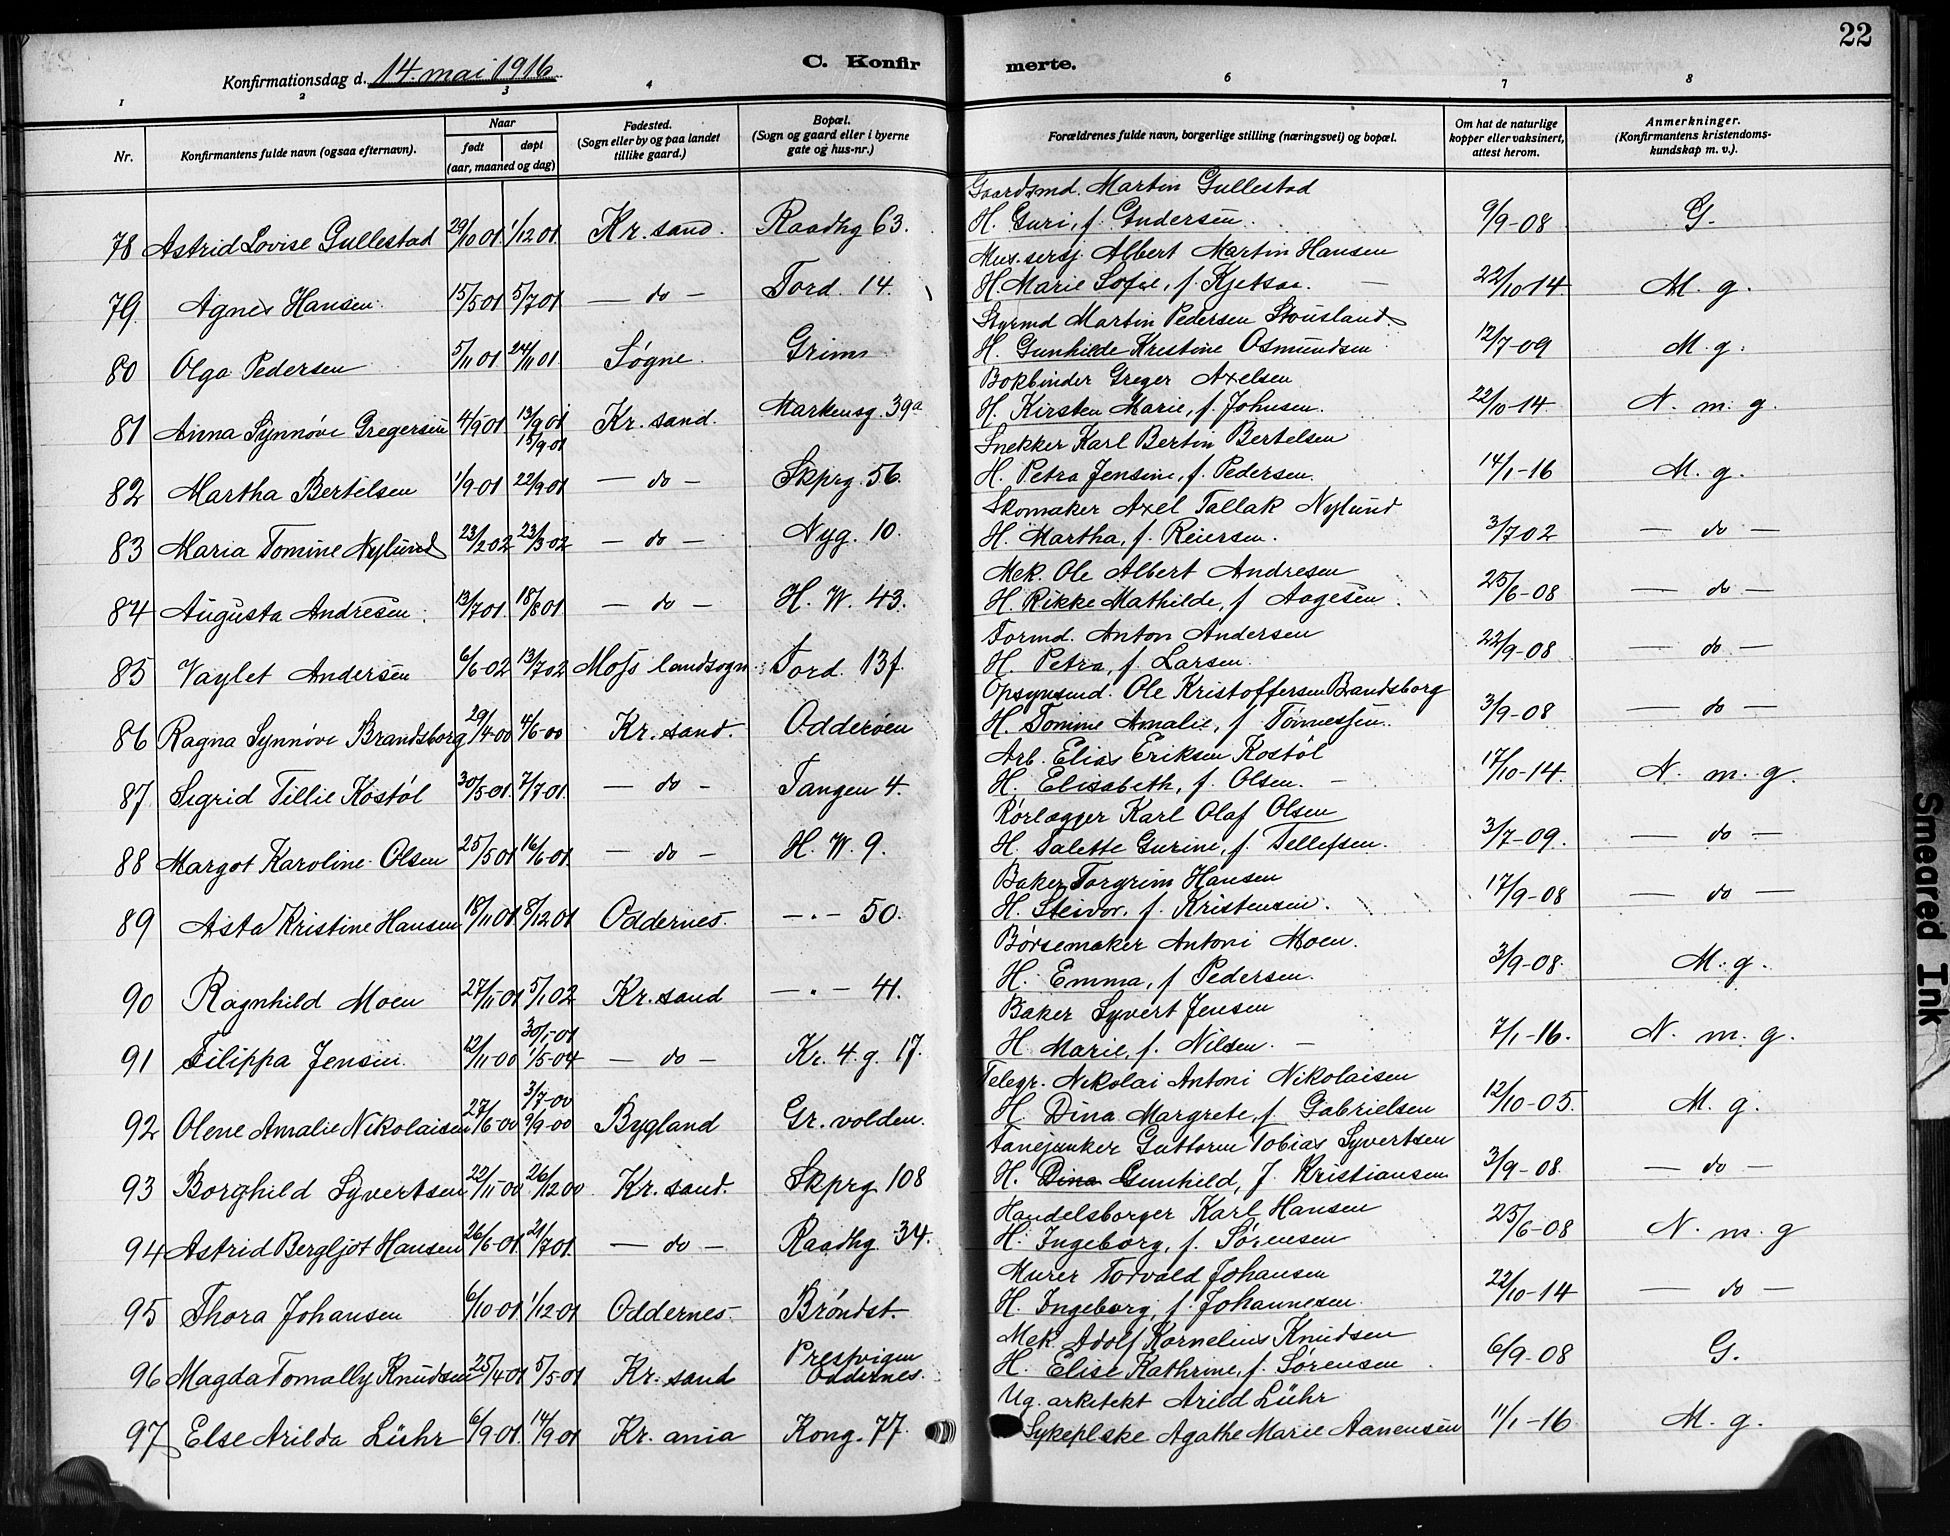 22
Konfirmationsdag d. 14. mai 1916.
C. Konfirmerte.
1 2 3 4 6 7 8
Nr.
Konfirmantens fulde navn (ogsaa efternavn).
Naar
født
døpt
(aar, maaned og dag)
Fødested.
(Sogn eller by og paa landet
tillike gaard.)
Bopæl.
(Sogn og gaard eller i byerne
gate og hus-nr.)
Forældrenes fulde navn, borgerlige stilling (næringsvei) og bopæl.
Om hat de naturlige
kopper eller vaksinert,
attest herom.
Anmerkninger.
(Konfirmantens kristendoms-
kundskap m. v.).
Gaardsmd. Martin Gullestad
78 Astrid Lovise Gullestad 29/10 01 1/12 01 Kr. sand. Raadhg 63. H. Guri, f. Gundersen. 9/9-08 G.
Mus.sersj. Albert Martin Hansen
79. Agnes Hansen. 15/5 01 5/7 01 — do — Tord. 14. H. Marie Sofie, f. Kjetsaa. — 22/10 14. M. g.
Styrmd Martin Pedersen Stousland
80 Olga Pedersen 5/11 01 24/11 01 Søgne. Grim H. Gunhilde Kristine Osmundsen 12/7-09 M. g.
Bokbinder Greger Axelsen
81 Anna Synnøve Gregersen 4/9 01 13/9 01 Kr. sand. Markensg. 39a H. Kirsten Marie, f. Johnsen. 22/10-14 N. m. g.
15/9 01
Snekker Karl Bertin Bertelsen
82 Martha Bertelsen 1/9-01 22/9 01 — do — Skprg. 56. H. Petra Jensine, f. Pedersen. 14/1-16 M. g.
Skomaker Axel Tallak Nylund
83 Maria Tomine Nylund 23/2 02 23/3-02 — do — Nyg. 10. H. Martha, f. Reiersen. 3/7 02 — do —
Mek. Ole Albert Andresen
84 Augusta Andresen. 13/7 01. 18/8 01 — do — H. W. 43. H. Rikke Mathilde, f Aagesen 25/6-08 — do —
Formd. Anton Andersen
85 Vaylet Andersen 6/6-02 13/7 02 Moss landsogn. Tord. 13f. H. Petra, f. Larsen. 22/9-08 — do —
Opsynsmd. Ole Kristoffersen Brandsborg
86 Ragna Synnøve Brandsborg 29/4-00 4/6-00 Kr. sand. Odderøen H. Tomine Amalie, f Tønnessen. 3/9-08 — do —
Arb. Elias Eriksen Kostøl
87 Sigrid Tillie Kostøl 30/5-01. 7/7-01. — do — Tangen 4. H. Elisabeth, f. Olsen. — 17/10-14. N. m. g.
Rørlægger Karl Olaf Olsen
88 Margot Karoline Olsen 25/5 01 16/6-01. — do — H. W. 9. H. Talette Gurine, f. Tellefsen. 3/7-09. — do —
Baker Torgrim Hansen
89 Asta Kristine Hansen 18/11 01 8/12 01 Oddernes. — " — 50. H. Steivor, f. Kristensen. 17/9-08 — do —
Børsemaker Antoni Moen.
90 Ragnhild Moen 27/11-01 5/1 02 Kr. sand — " — 41. H. Emma, f Pedersen. 3/9-08. M. g.
Baker Syvert Jensen
30/1-01
91 Filippa Jensen. 12/11-00 1/5-04 — do — Kr. 4. g. 17. H. Marie, f. Nilsen. — 7/1-16. N. m. g.
Telegr. Nikolai Antoni Nikolaisen
3/7-00
92 Olene Amalie Nikolaisen 27/6-00 9/9-00 Bygland Gr. volden. H. Dina Margrete, f. Gabrielsen 12/10-05. M. g.
Fanejunker Guttorm Tobias Syvertsen
93 Borghild Syvertsen 22/11-00 26/12 00 Kr. sand. Skprg 108 H. Dina Gunhild, f Kristiansen 3/9-08. — do —
Handelsborger Karl Hansen
94 Astrid Bergljot Hansen 26/6-01. 21/7 01. — do — Raadhg. 34. H. Ingeborg, f. Sørensen 25/6-08 N. m. g
Murer Torvald Johansen
95 Thora Johansen 6/10-01 1/12-01 Oddernes. Brøndst. H. Ingeborg, f. Johannesen. 22/10-14 — do —
Mek. Adolf Kornelius Knudsen
96 Magda Tomally Knudsen 25/4-01 5/5-01 Kr. sand Prestvigen
Oddernes. H. Elise Kathrine, f. Sørensen. 6/9-08 G.
Ug. arkitekt Arild Lühr
97 Else Arilda Lühr 6/9 01. 14/9-01 Kr. ania Kong. 77. Sykepleske Agathe Marie Aanensen 11/1-16 M. g.
Smeared Ink